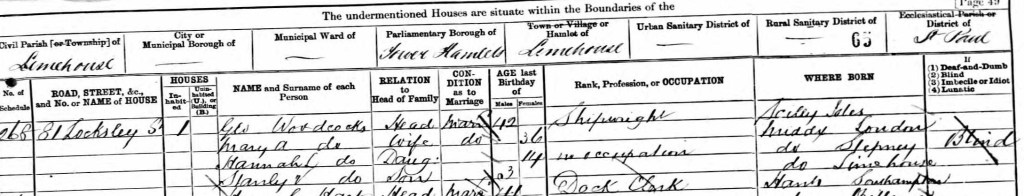 Page 49
The undermentioned Houses are situate within the Boundaries of the
Civil Parish [or Township] of
City or Municipal Borough of
Municipal Ward of
Parliamentary Borough of
Town or Village or Hamlet of
Urban Sanitary District of
Rural Sanitary District of
Ecclesiastical Parish or District of
Limehouse Tower Hamlets Limehouse 65 St Paul
No. of Schedule
ROAD, STREET, &c., and No. or NAME of HOUSE
HOUSES
Inhabited
Uninhabited (U.), or Building (B.)
NAME and Surname of each Person
RELATION to Head of Family
CONDITION as to Marriage
AGE last Birthday of
Males Females
Rank, Profession, or OCCUPATION
WHERE BORN
If
(1) Deaf-and-Dumb
(2) Blind
(3) Imbecile or Idiot
(4) Lunatic
268 81 Locksley St 1 Geo Woodcocks Head Marr 42 Shipwright Scilly Isles
Mary A do Wife do 36 Middx London
Hannah do Daug 14 no occupation do Stepney Blind
Stanly do Son 3 do Limehouse
Head Marr Dock Clerk Hants Southampton